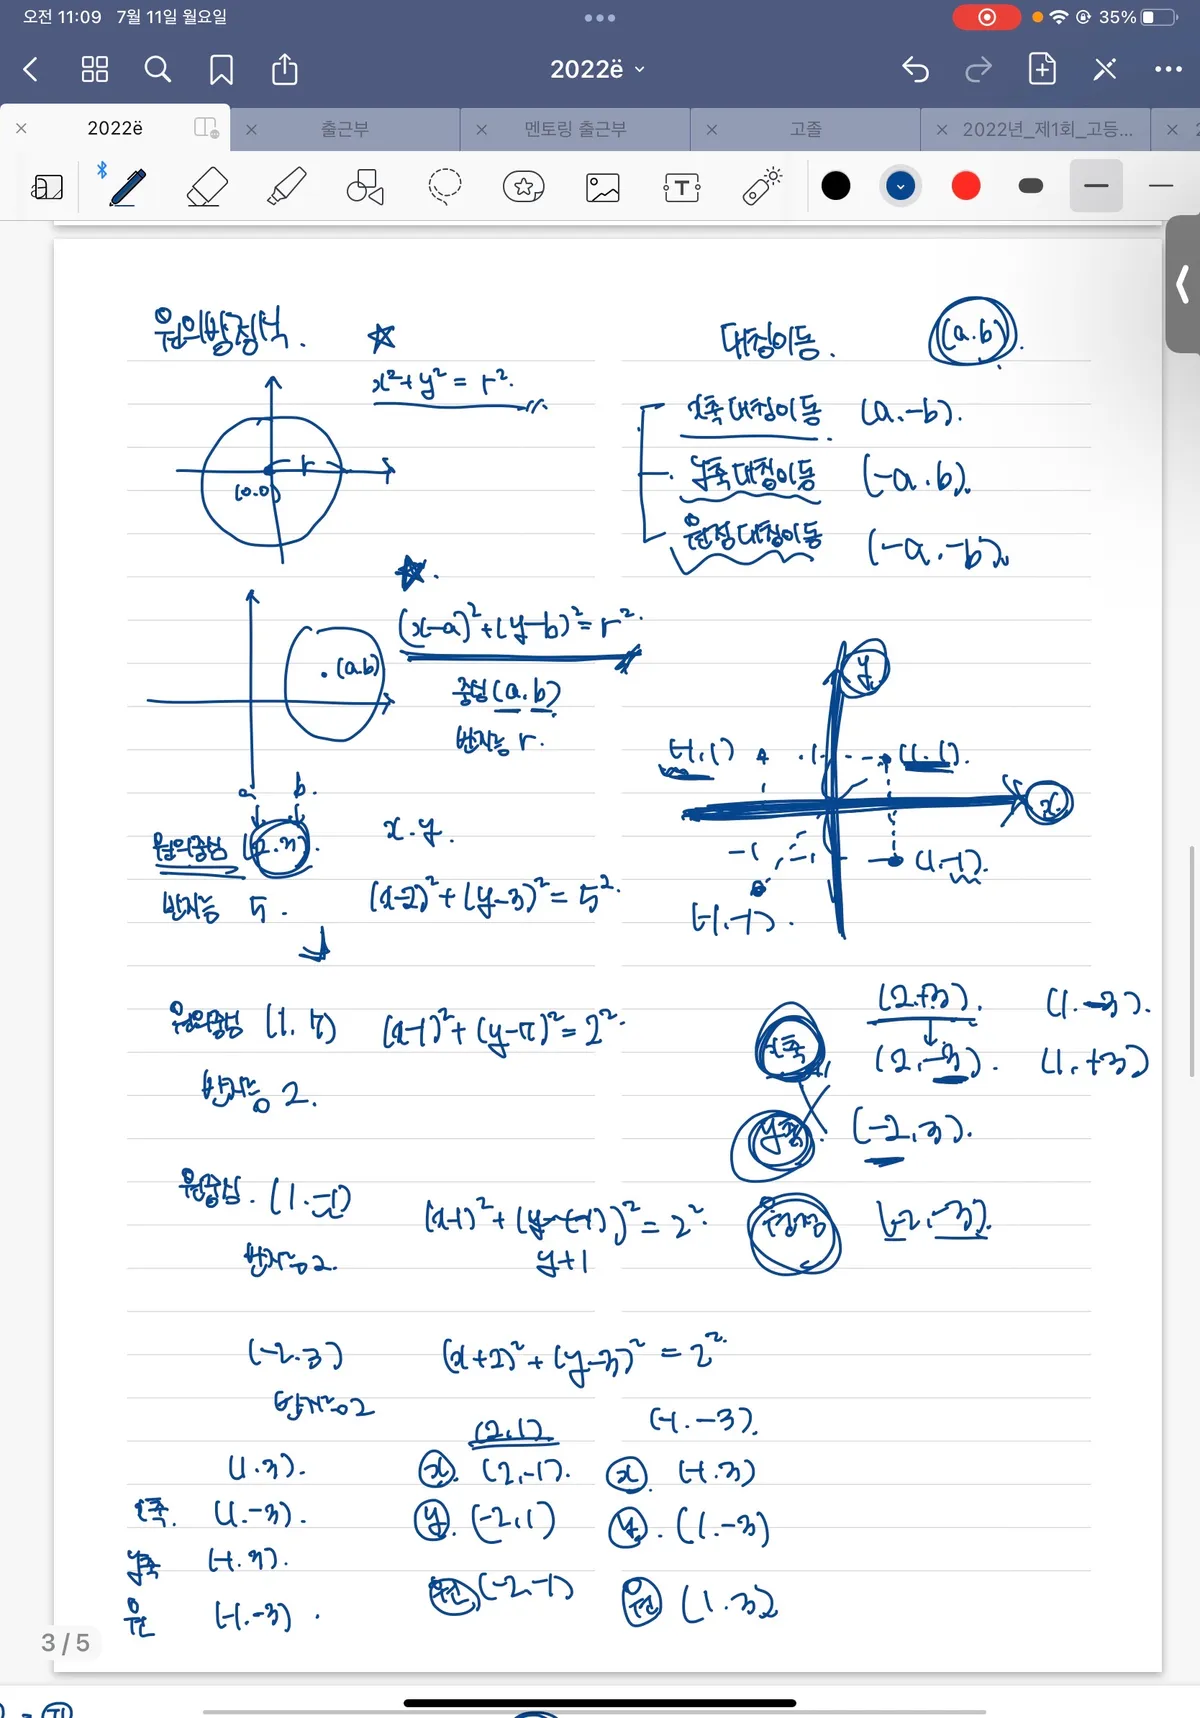 오전 11:09 7월 11일 월요일
35%
2022ë
2022ë
출근부
멘토링 출근부
고졸
2022년_제1회_고등...
원의방정식.
x²+y²=r².
r
(0.0)
(x-a)²+(y-b)²=r².
(a.b)
중심(a.b)
반지름 r.
a b.
원의중심 (2.3).
x.y.
반지름 5.
(x-2)²+(y-3)²=5².
원의중심 (1.5)
(x-1)²+(y-5)²=2².
반지름 2.
원중심. (1.-1)
(x-1)²+(y-(-1))²=2².
반지름2.
y+1
(-2.3)
(x+2)²+(y-3)²=2².
반지름2
(1.3).
x축. (1.-3).
y축 (-1.3).
원 (-1.-3).
(2,1)
x. (2,-1).
y. (-2,1)
원 (-2,-1)
(-1.-3).
x (-1.3)
y. (1.-3)
원 (1.3)
대칭이동.
(a.b).
x축대칭이동 (a.-b).
y축대칭이동 (-a.b).
원점대칭이동 (-a.-b).
y
(-1,1) 1 (1.1).
x
-1 -1 (1,-1).
(-1.-1).
(2.+3). (1.-3).
x축 (2,-3). (1,+3)
y축. (-2,3).
원점 (-2,-3).
3 / 5